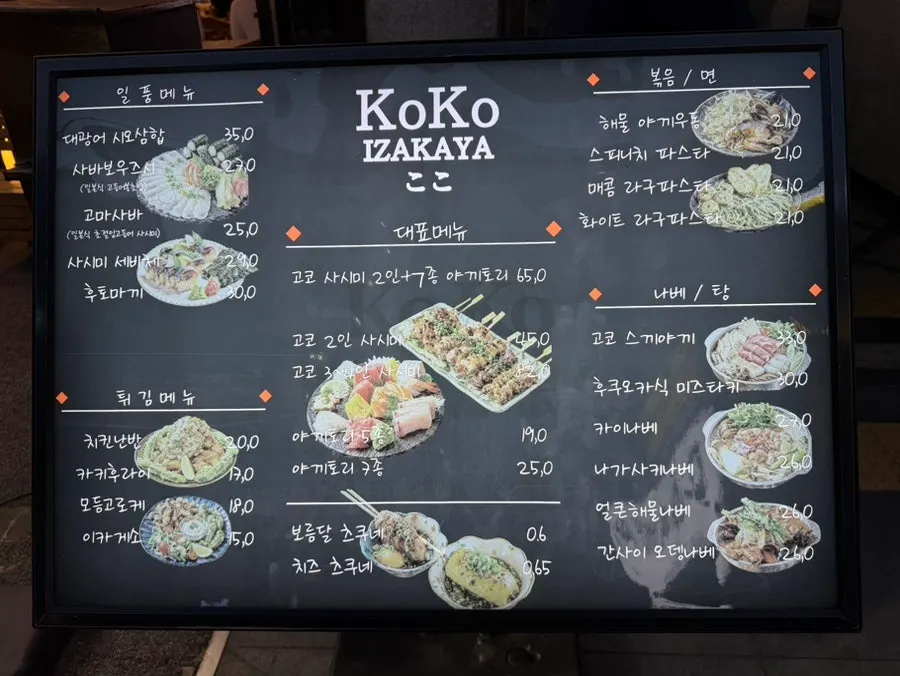 KoKo
IZAKAYA
ここ
일품메뉴
대광어 시오삼합 35,0
사바보우즈시 27,0
고마사바
(일본식 초절임고등어 사시미) 25,0
사시미 세비체 29,0
후토마끼 30,0
튀김메뉴
치킨난반 20,0
카키후라이 17,0
모듬고로케 18,0
이카게소 15,0
대표메뉴
고코 사시미 2인+7종 야끼토리 65,0
고코 2인 사시미 45,0
고코 3~4인 사시미 82,0
야끼토리 5종 19,0
야끼토리 7종 25,0
보름달 츠쿠네 0.6
치즈 츠쿠네 0.65
볶음 / 면
해물 야끼우동 21,0
스피니치 파스타 21,0
매콤 라구파스타 21,0
화이트 라구파스타 21,0
나베 / 탕
고코 스끼야끼 33,0
후쿠오카식 미즈타키 30,0
카이나베 27,0
나가사키나베 26,0
얼큰해물나베 26,0
간사이 오뎅나베 26,0